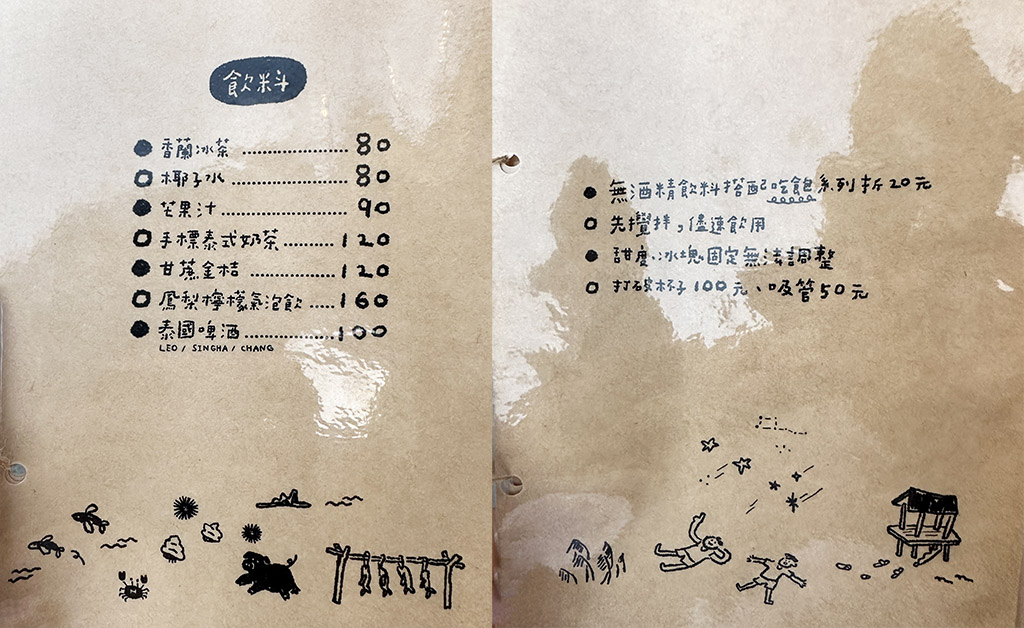 飲料
香蘭冰茶 80
椰子水 80
芒果汁 90
手標泰式奶茶 120
甘蔗金桔 120
鳳梨檸檬氣泡飲 160
泰國啤酒 100
LEO / SINGHA / CHANG
無酒精飲料搭配吃飽系列折20元
先攪拌，儘速飲用
甜度、冰塊固定無法調整
打破杯子100元、吸管50元